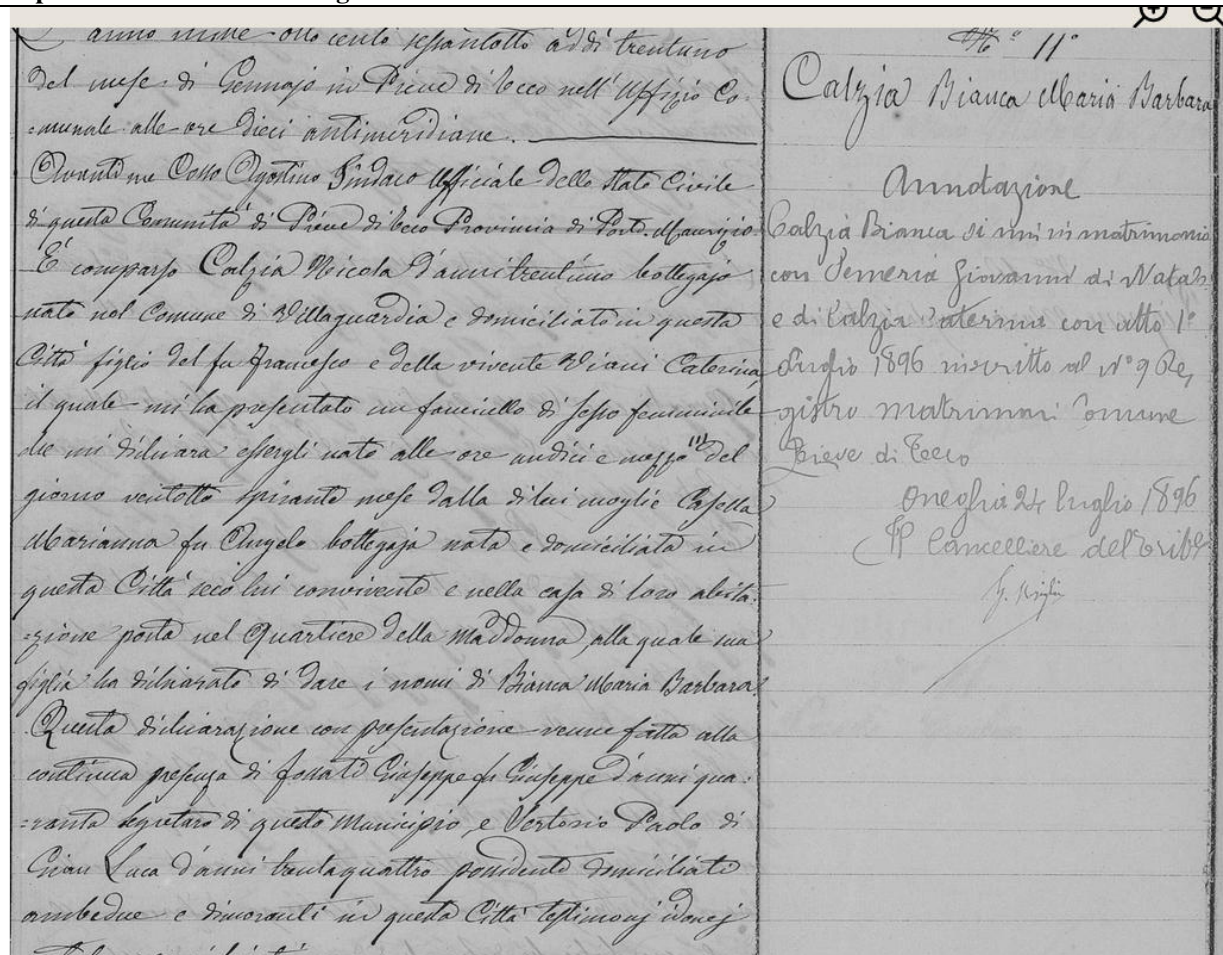 L'anno mille ottocento sessantotto addì trentuno
del mese di Gennajo in Pieve di Teco nell' Uffizio Co-
=munale alle ore dieci antimeridiane.
Avanti me Agostino Sindaco Ufficiale dello Stato Civile
di questa Comunità di Pieve di Teco Provincia di Porto-Maurizio.
È comparso Calzia Nicola d'anni trentuno bottegajo
nato nel Comune di Villaguardia e domiciliato in questa
Città figlio del fu Francesco e della vivente Viani Caterina,
il quale mi ha presentato un fanciullo di sesso femminile
che mi dichiara essergli nato alle ore undici e mezza del
giorno ventotto spirante mese dalla di lui moglie Casella
Marianna fu Angelo bottegaja nata e domiciliata in
questa Città seco lui convivente e nella casa di loro abita-
=zione posta nel Quartiere della Maddonna, alla quale sua
figlia ha dichiarato di dare i nomi di Bianca Maria Barbara.
Questa dichiarazione con presentazione venne fatta alla
continua presenza di Fossati Giuseppe fu Giuseppe d'anni qua-
=ranta segretaro di questo Municipio, e Paolo di
Gian Luca d'anni trentaquattro possidente domiciliati
ambedue e dimoranti in questa Città testimonj idonej
N° 11°
Calzia Bianca Maria Barbara
Annotazione
Calzia Bianca si unì in matrimonio
con Semeria Giovanni di Natale
e di Calzia Caterina con atto 1°
Luglio 1896 inscritto al N° 9 Re,
gistro matrimoni Comune
Pieve di Teco
Oneglia 24 luglio 1896
Il Cancelliere del Tribe